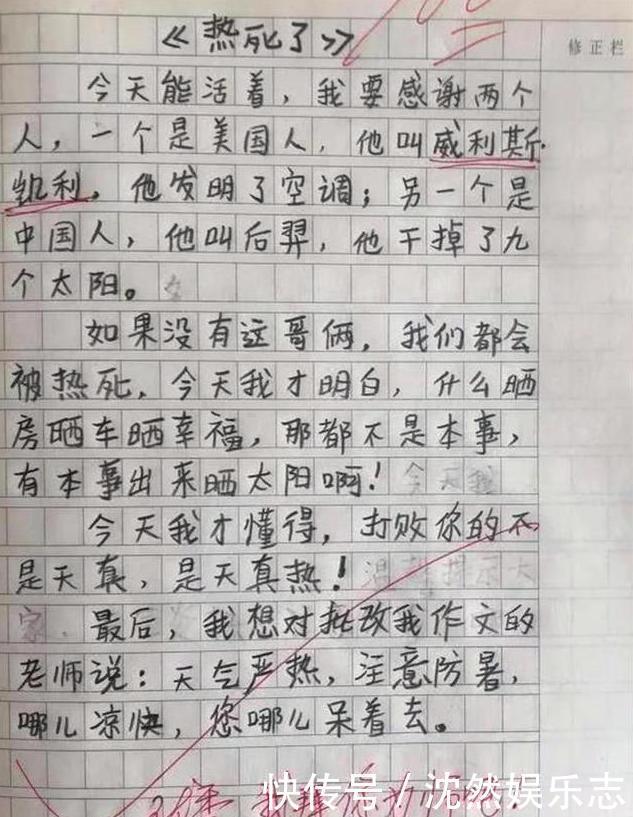 《热死了》
修正栏
今天能活着，我要感谢两个
人，一个是美国人，他叫威利斯·
凯利，他发明了空调；另一个是
中国人，他叫后羿，他干掉了九
个太阳。
如果没有这哥俩，我们都会
被热死，今天我才明白，什么晒
房晒车晒幸福，那都不是本事，
有本事出来晒太阳啊！今天我
今天我才懂得，打败你的不
是天真，是天真热！温馨提示大
家
最后，我想对批改我作文的
老师说：天气严热，注意防暑，
哪儿凉快，您哪儿呆着去。
快传号/沈然娱乐志